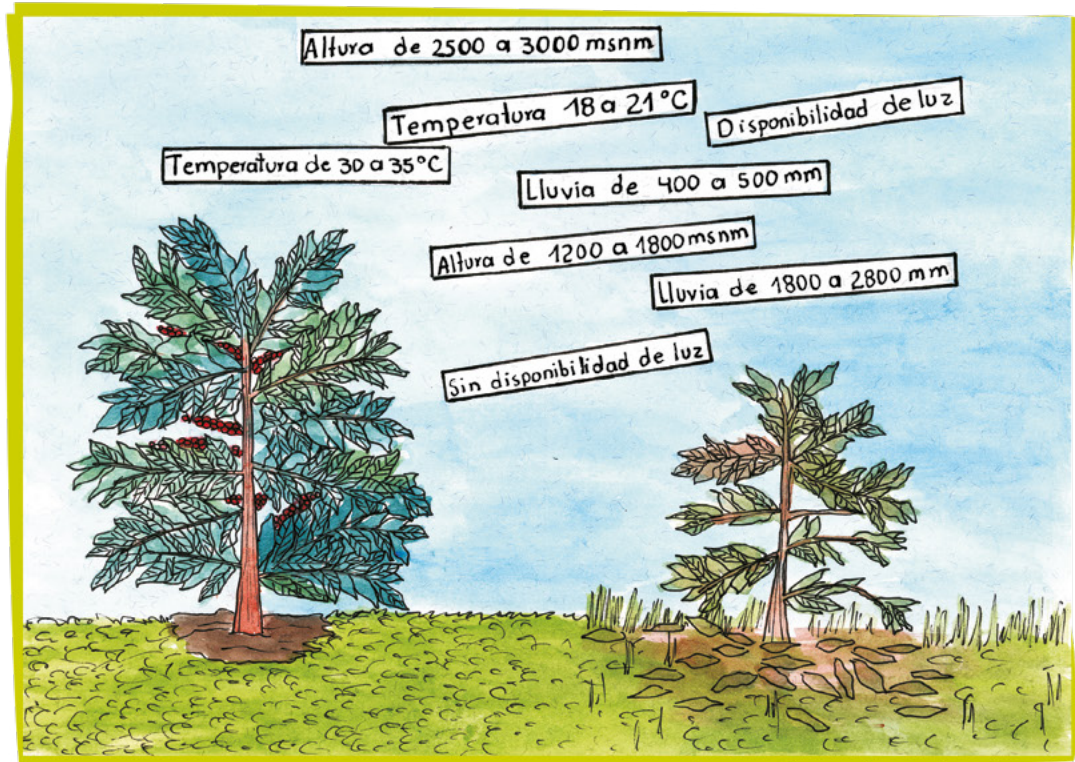 Altura de 2500 a 3000 msnm
Temperatura 18 a 21°C
Disponibilidad de luz
Temperatura de 30 a 35°C
Lluvia de 400 a 500 mm
Altura de 1200 a 1800 msnm
Lluvia de 1800 a 2800 mm
Sin disponibilidad de luz